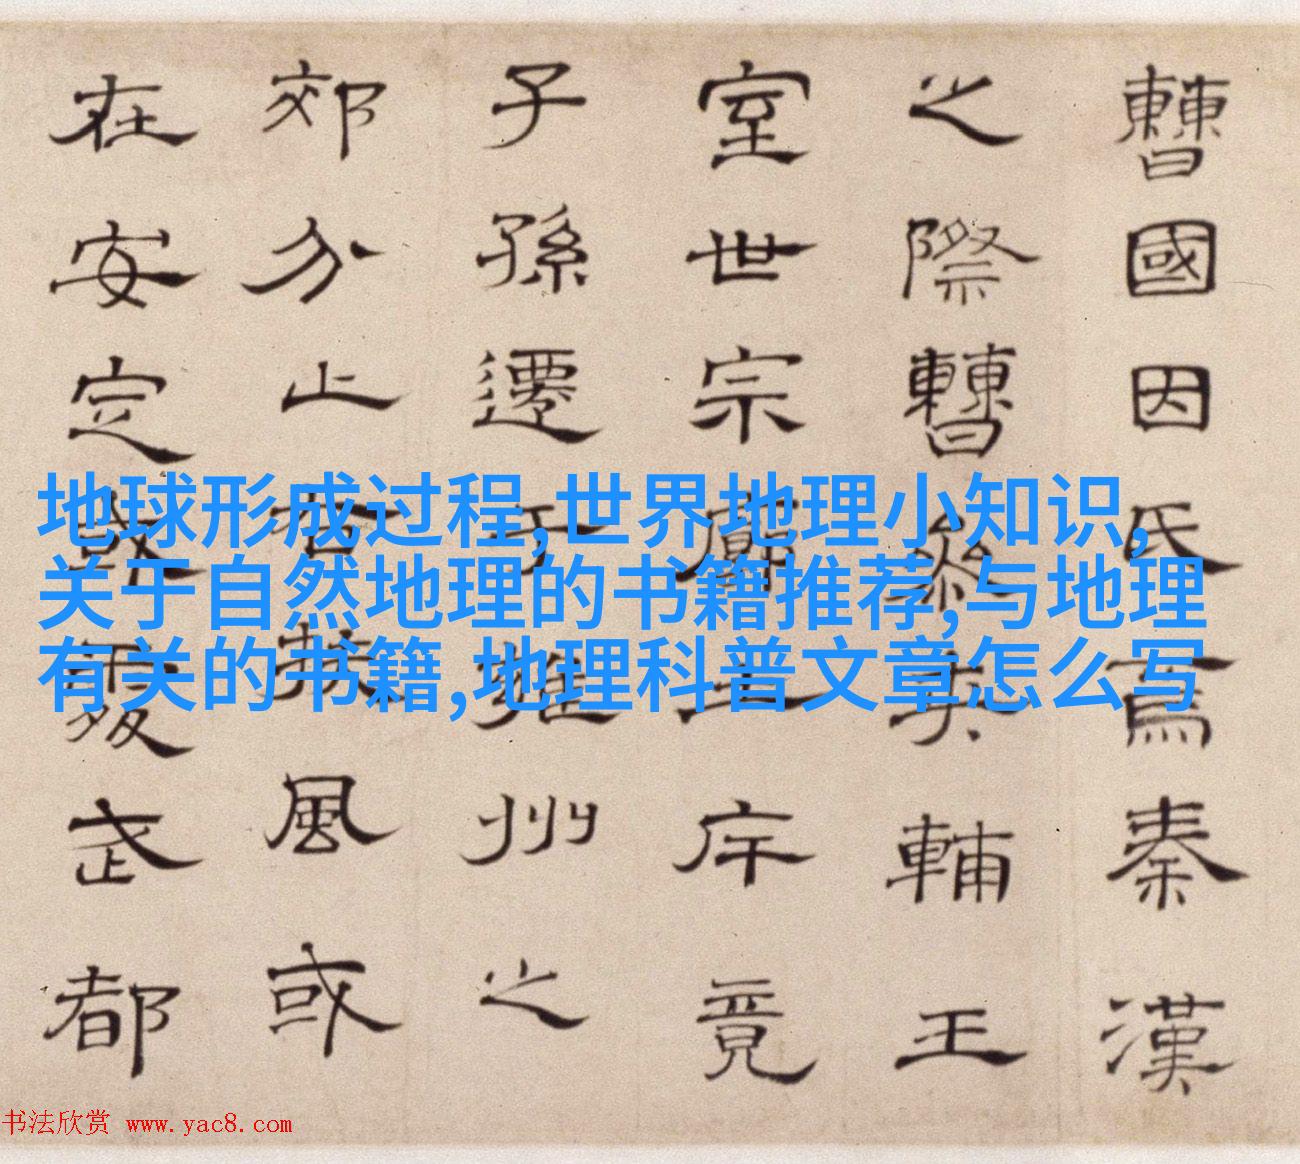 曹國因氏焉秦漢
之際曹參夾輔王
室世宗廓土斥竟
子孫遷于雍州之
郊分止右扶風或
在安定或處武都
地球形成过程,世界地理小知识,
关于自然地理的书籍推荐,与地理
有关的书籍,地理科普文章怎么写
书法欣赏 www.yac8.com